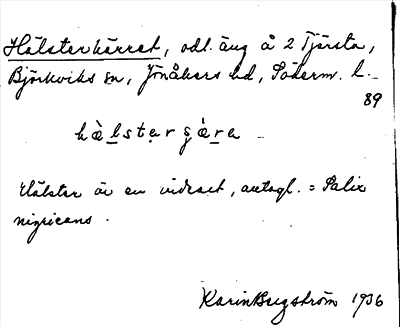 Hälsterkärret, odl. äng å 2 Tjärsta,
Björkviks sn, Jönåkers hd, Söderm. l.
89
hälster är en videart, antagl. = Salix
nigricans.
Karin Bergström 1936